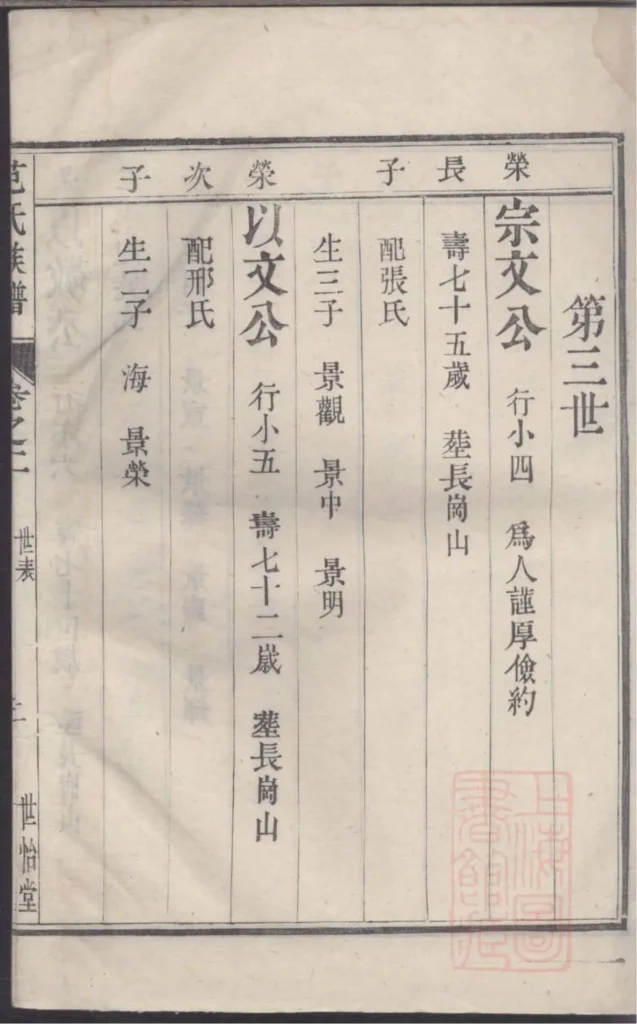 第三世
榮長子
宗文公 行小四 爲人謹厚儉約
壽七十五歲 塟長崗山
配張氏
生三子 景觀 景中 景明
榮次子
以文公 行小五 壽七十二歲 塟長崗山
配邢氏
生二子 海 景榮
范氏族譜 卷之二 世表 二 世怡堂
上海圖
書館藏